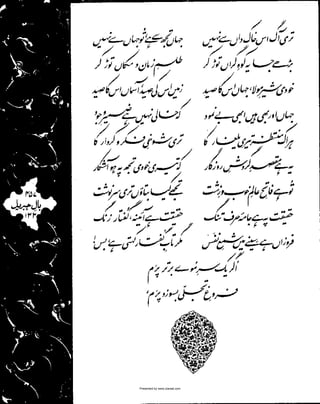 تری آگ اس خاک داں سے نہیں
جہاں تجھ سے ہے، تو جہاں سے نہیں
بڑھے جا یہ کوہِ گراں توڑ کر
طلسمِ زمان و مکاں توڑ کر
خودی شیرِ مولا، جہاں اس کا صید
زمیں اس کی صید، آسماں اس کا صید
جہاں اور بھی ہیں ابھی بے نمود
کہ خالی نہیں ہے ضمیرِ وجود
ہر اک منتظر تیری یلغار کا
تری شوخیِ فکر و کردار کا
یہ ہے مقصدِ گردشِ روزگار
کہ تیری خودی تجھ پہ ہو آشکار
تو ہے فاتحِ عالمِ خوب و زشت
تجھے کیا بتاؤں تری سرنوشت
حقیقت پہ ہے جامۂ حرف تنگ
حقیقت ہے آئینہ، گفتار زنگ
فروزاں ہے سینے میں شمعِ نفس
مگر تابِ گفتار کہتی ہے، بس!
اگر یک سرِ موے برتر پرم
فروغِ تجلّی بسوزد پرم
بالِ جبریل
۱۳۲